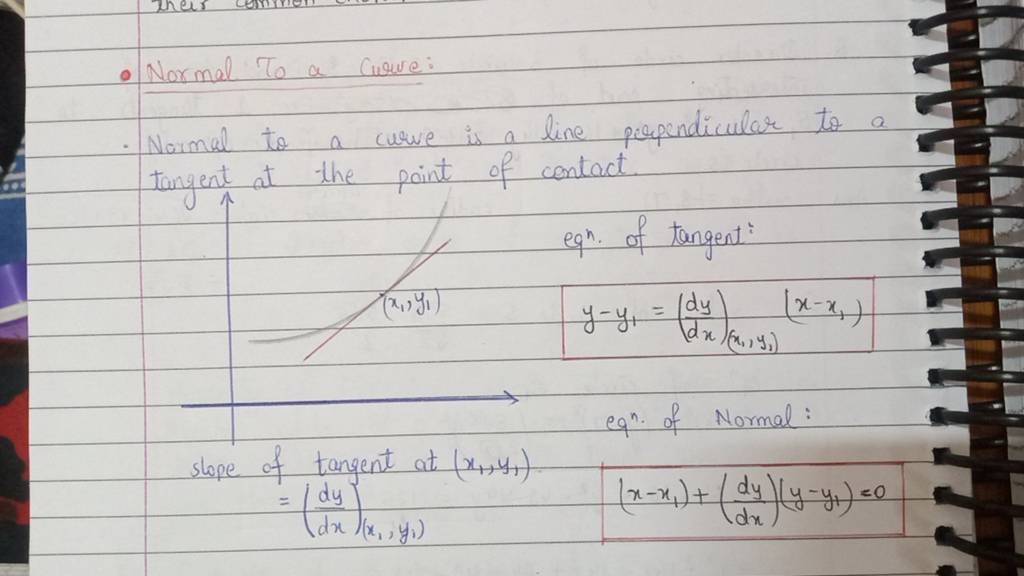 their common
• Normal To a Curve:
· Normal to a curve is a line perpendicular to a
tangent at the point of contact.
(x₁, y₁)
eqⁿ. of tangent:
y-y₁ = (dy/dx)(x₁, y₁) (x-x₁)
eqⁿ. of Normal:
(x-x₁)+(dy/dx)(y-y₁)=0
slope of tangent at (x₁, y₁)
= (dy/dx)(x₁, y₁)